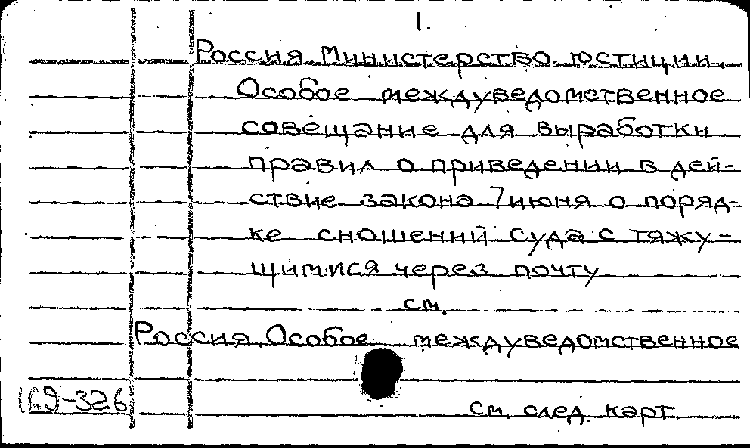 1.
Россия. Министерство юстиции.
Особое междуведомственное
совещание для выработки
правил о приведении в дей-
ствие закона 7 июня о поряд-
ке сношений суда с тяжу-
щимися через почту
см.
Россия. Особое междуведомственное
169-326
см. след. карт.